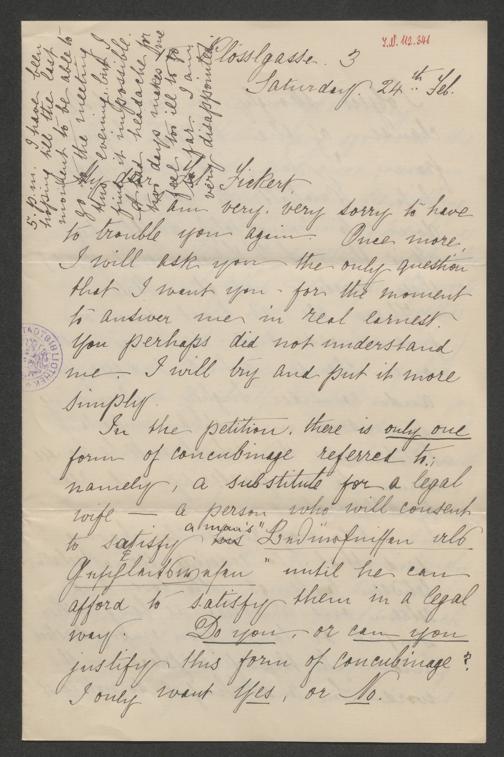 I.N. 112.341
Plösslgasse 3
Saturday 24th Feb.
My dear Frl. Fickert
I am very, very sorry to have
to trouble you again. Once more,
I will ask you the only question
that I want you - for the moment
to answer me in real earnest.
You perhaps did not understand
me. I will try and put it more
simply.
In the petition, there is only one
form of concubinage referred to;
namely, a substitute for a legal
wife — a person who will consent
to satisfy a man's "Bedürfnissen als
Geschlechtswesen" until he can
afford to satisfy them in a legal
way. Do you, or can you
justify this form of concubinage?
I only want Yes, or No.
5. p.m. I have been
hoping till the last
moment to be able to
go to the meeting
this evening, but I
find it impossible.
A bad headache for
two days makes me
feel too ill to go
so far. I am
very disappointed
STADTBIBLIOTHEK